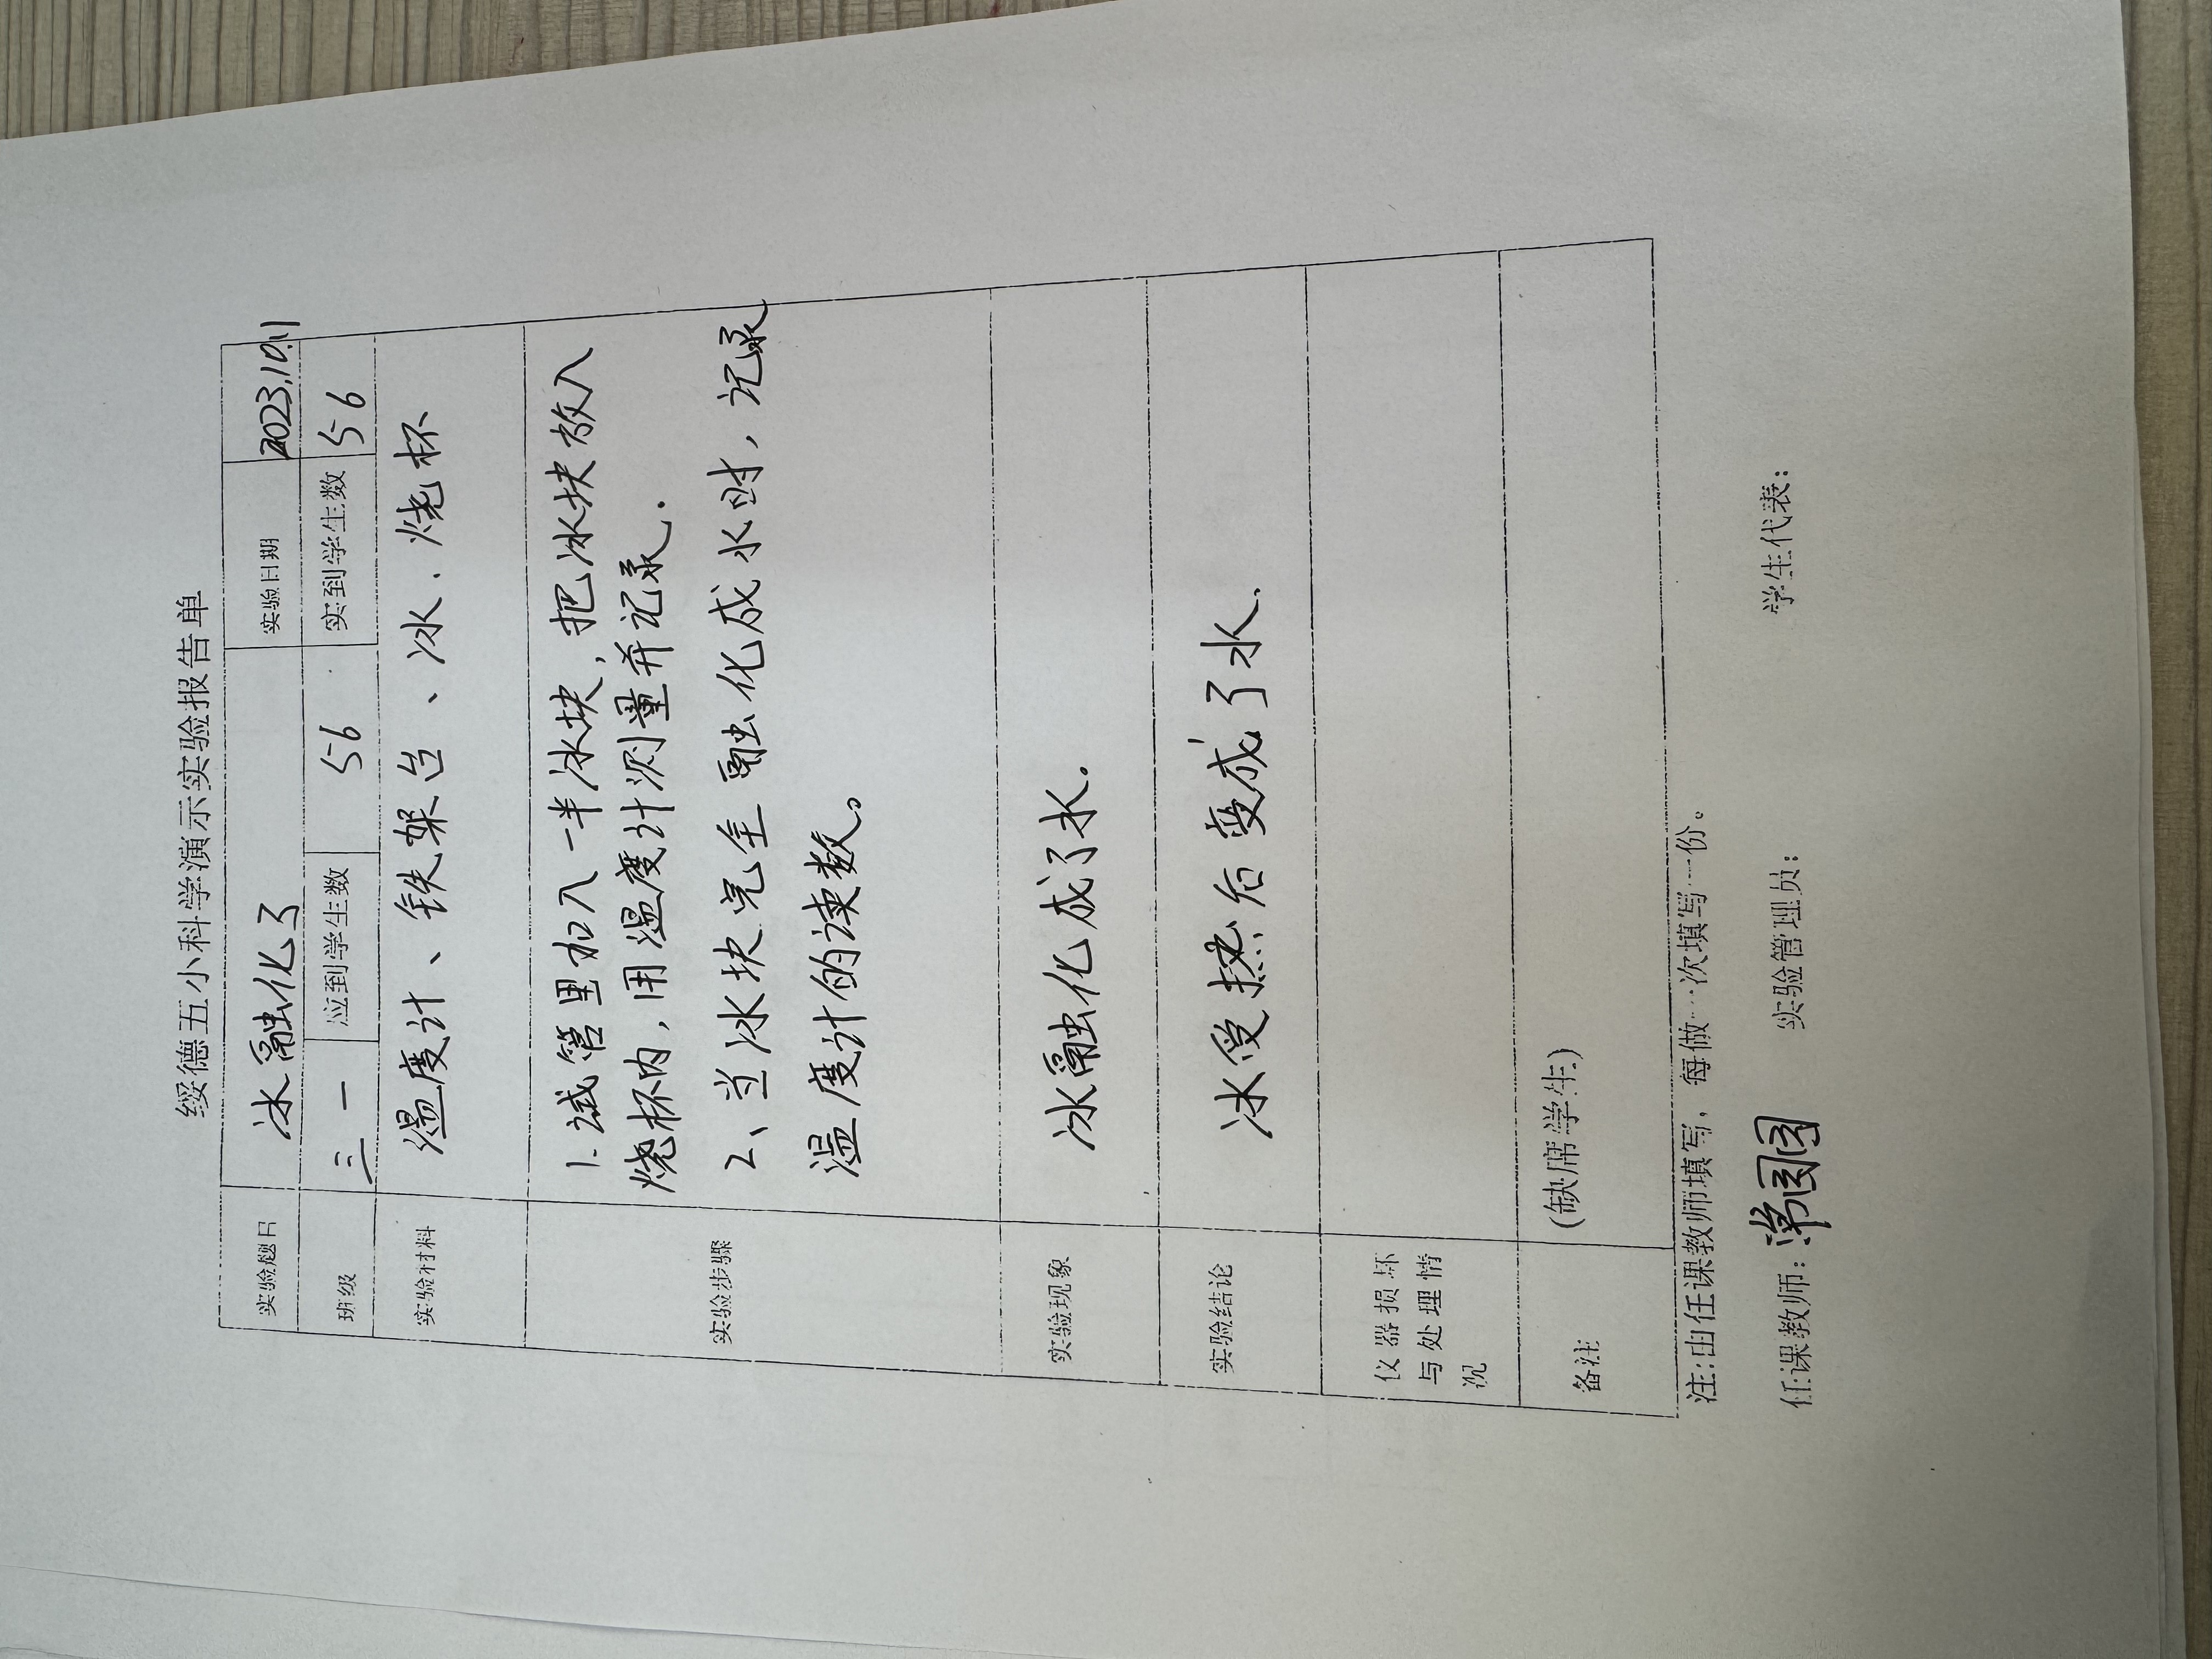 绥德五小科学演示实验报告单
实验题目 冰融化了 实验日期 2023.10.11
班级 三一 应到学生数 56 实到学生数 56
实验材料 温度计、铁架台、冰、烧杯
实验步骤
1.试管里加入一半冰块,把冰块放入
烧杯内,用温度计测量并记录.
2、当冰块完全融化成水时,记录
温度计的读数。
实验现象 冰融化成了水。
实验结论 冰受热后变成了水.
仪器损坏
与处理情
况
备注 (缺席学生)
注:由任课教师填写,每做一次填写一份。
任课教师: 实验管理员: 学生代表: